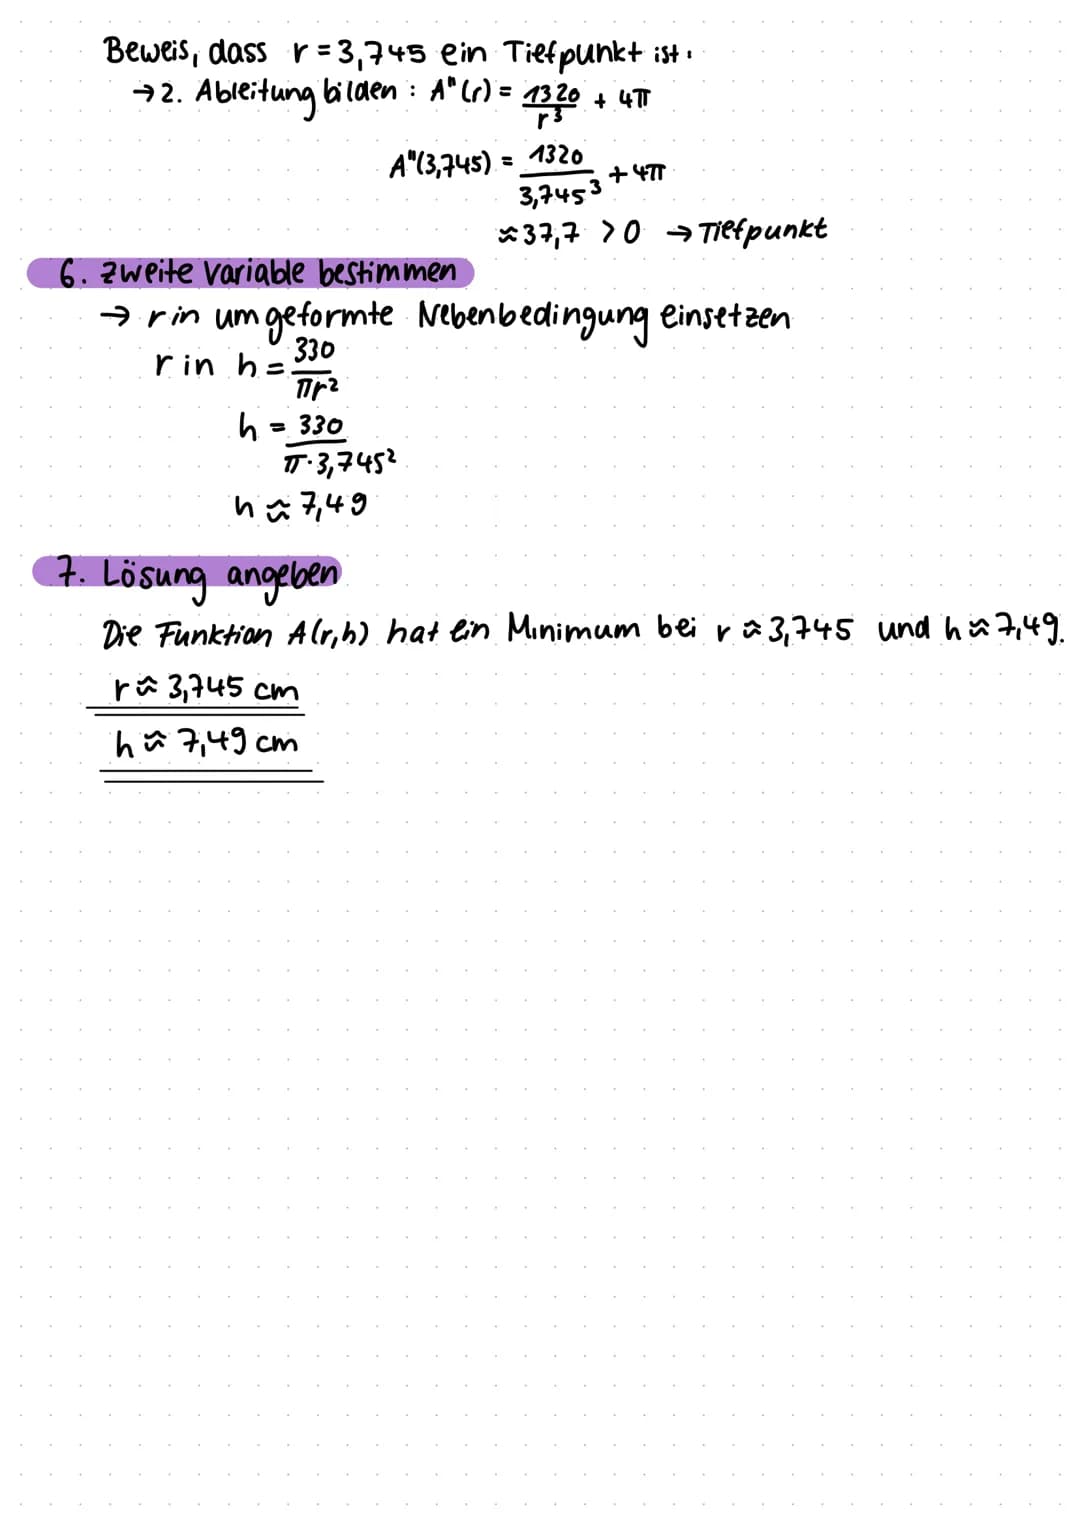 Beweis, dass r = 3,745 ein Tiefpunkt ist.
→ 2. Ableitung bilden : A"(r) = 1320/r³ + 4π
A"(3,745) = 1320/3,745³ + 4π
≈ 37,7 > 0 → Tiefpunkt
6. Zweite Variable bestimmen
→ r in umgeformte Nebenbedingung einsetzen
r in h = 330/πr²
h = 330/π·3,745²
h ≈ 7,49
7. Lösung angeben
Die Funktion A(r,h) hat ein Minimum bei r ≈ 3,745 und h ≈ 7,49.
r ≈ 3,745 cm
h ≈ 7,49 cm